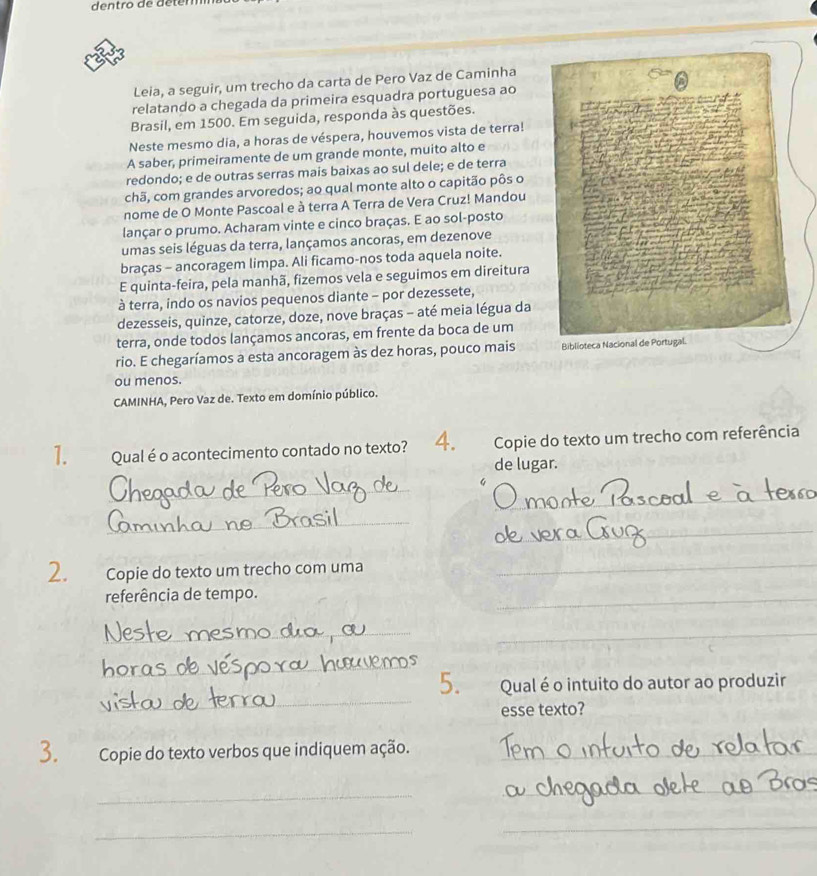 dentro de
Leia, a seguir, um trecho da carta de Pero Vaz de Caminha
relatando a chegada da primeira esquadra portuguesa ao
Brasil, em 1500. Em seguida, responda às questões.
Neste mesmo dia, a horas de véspera, houvemos vista de terra!
A saber, primeiramente de um grande monte, muito alto e
redondo; e de outras serras mais baixas ao sul dele; e de terra
chã, com grandes arvoredos; ao qual monte alto o capitão pôs o
nome de O Monte Pascoal e à terra A Terra de Vera Cruz! Mandou
lançar o prumo. Acharam vinte e cinco braças. E ao sol-posto
umas seis léguas da terra, lançamos ancoras, em dezenove
braças – ancoragem limpa. Ali ficamo-nos toda aquela noite.
E quinta-feira, pela manhã, fizemos vela e seguimos em direitura
à terra, indo os navios pequenos diante – por dezessete,
dezesseis, quinze, catorze, doze, nove braças – até meia légua da
terra, onde todos lançamos ancoras, em frente da boca de um
rio. E chegaríamos a esta ancoragem às dez horas, pouco mais
ou menos.
CAMINHA, Pero Vaz de. Texto em domínio público.
Biblioteca Nacional de Portugal.
1. Qual é o acontecimento contado no texto?
Chegada de Pero Vaz de
Caminha no Brasil
2. Copie do texto um trecho com uma
referência de tempo.
Neste mesmo dia, a
horas de véspora houvemos
vista de terra
3. Copie do texto verbos que indiquem ação.
4. Copie do texto um trecho com referência
de lugar.
"O monte Pascoal e à terra
de vera Cruz
5. Qual é o intuito do autor ao produzir
esse texto?
Tem o intuito de relatar
a chegada dele ao Bras